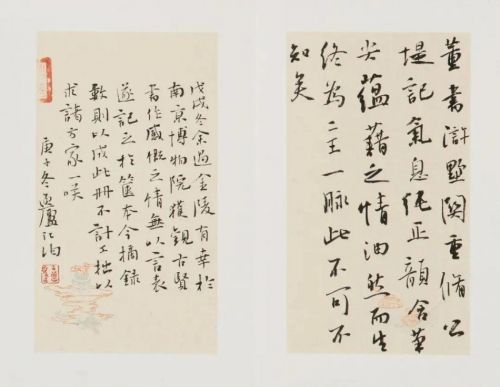 董書滸墅関重脩公
堤記氣息純正韻含筆
尖蘊藉之情油然而生
終為二王一脉此不可不
知矣
戊戌冬余過金陵有幸於
南京博物院獲觀古賢
書作感慨之情無以言表
遂記之於箧本今摘録
數則以成此册不計工拙以
求諸方家一咲
庚子冬廬江